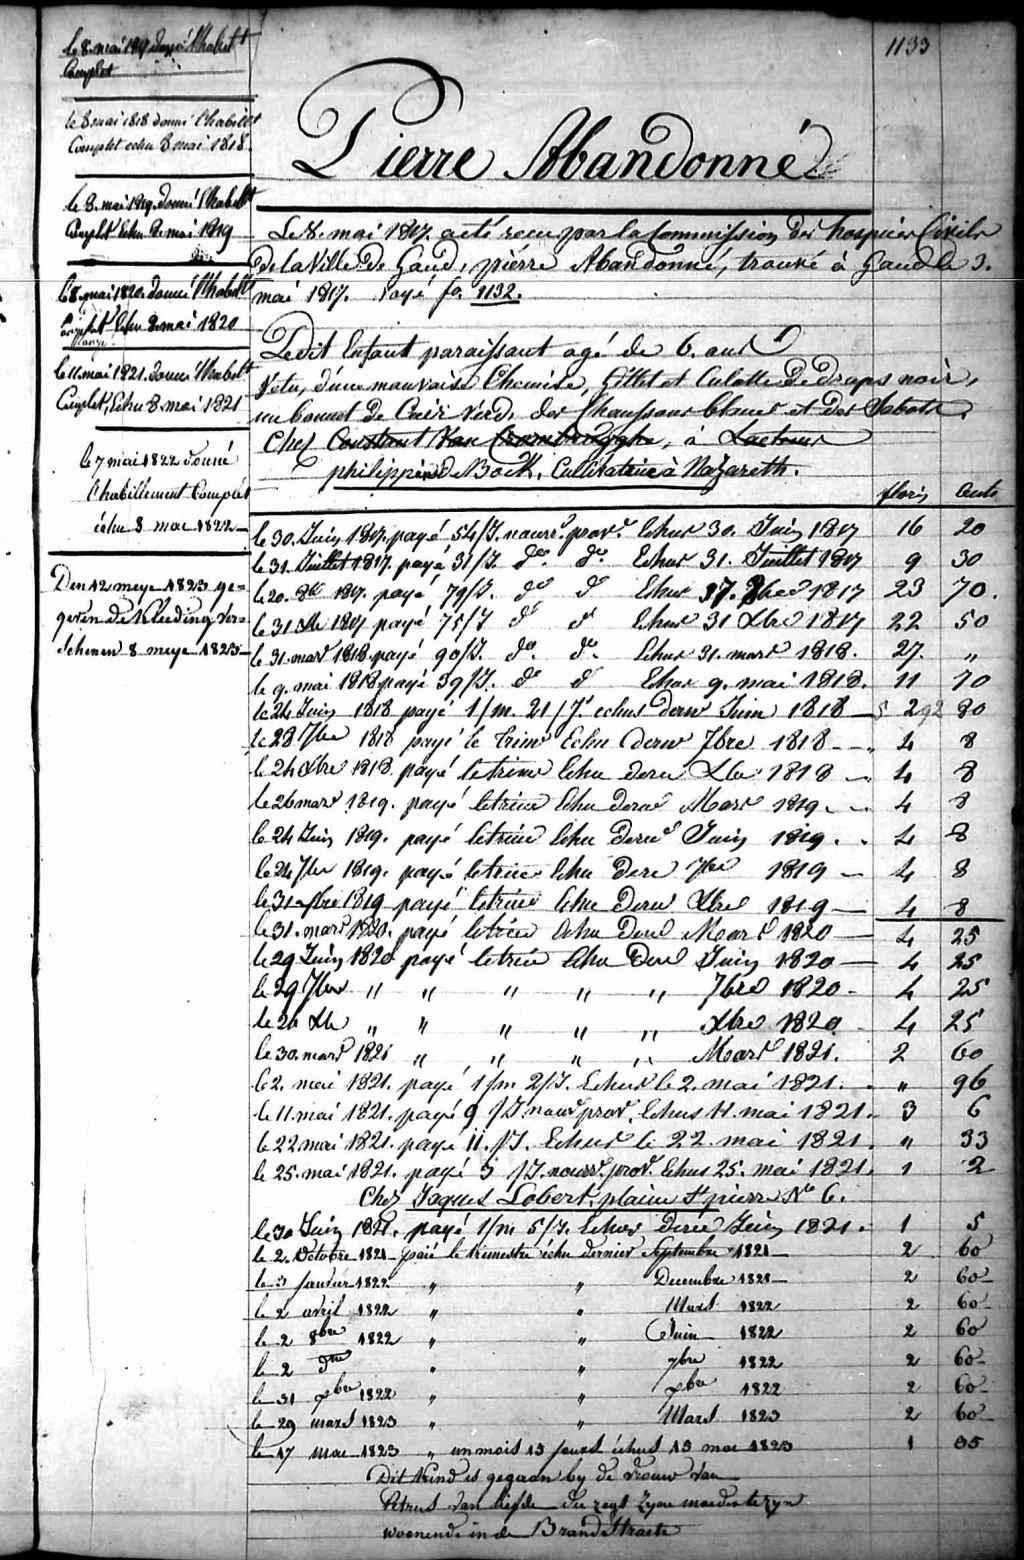 1133
le 8. mai 1817 donné l'habillt
Complet
le 8 mai 1818 donné l'habillt
Complet echu 8 mai 1818
le 8. mai 1819. donné l'habillt
Complet Echu 8. mai 1819
le 8. mai 1820. donné l'habillt
Complet Echu 8. mai 1820
le 11. mai 1821. donné l'habillt
Complet, Echu 8. mai 1821
le 7 mai 1822 donné
l'habillement Complet
échu 8 mai 1822
Den 12 meye 1823 ge=
geven de kleeding ver=
schenen 8 meye 1823
Pierre Abandonné
Le 8. mai 1817. acté recu par la Commission des hospices Civils
de la Ville de Gand, pièrre Abandonné, trouvé à Gand le 3.
mai 1817. Payé fo. 1132.
Ledit Enfant paraissant agé de 6. ans
Vetu, d'une mauvaise Chemise, Gillet et Culotte de draps noir,
un bonnet de Cuir Verd, des Chaussons blancs et des Sabots.
Chez Constant Van , à
philippe de Bock, Cultivateur à Nazareth.
florins Cents
le 30. Juin 1817. payé 54/J. nourr. prov. Echus 30. Juin 1817 16 20
le 31. Juillet 1817. payé 31/J. do. do. Echus 31. Juillet 1817 9 30
le 20. 8bre 1817. payé 79/J. do do Echus 17. 8bre 1817 23 70.
le 31 Xbre 1817 payé 75/J do do Echus 31 Xbre 1817 22 50
le 31. mars 1818. payé 90/J. do. do. Echus 31. mars 1818. 27. "
le 9. mai 1818 payé 39/J. do do Echus 9. mai 1818. 11 70
le 24 Juin 1818 payé 1/m. 21/J. echus dernr Juin 1818 2 80
le 28 7bre 1818 payé le trimr Echu dernr 7bre 1818 4 8
le 24 Xbre 1818. payé le trimr Echu dernr Xbre 1818 4 8
le 26 mars 1819. payé le trim Echu dernr Mars 1819. 4 8
le 24 Juin 1819. payé le trim Echu dernr Juin 1819. 4 8
le 24 7bre 1819. payé le trim Echu dernr 7bre 1819 4 8
le 31 Xbre 1819 payé le trim Echu dernr Xbre 1819 4 8
le 31. mars 1820. payé le trim Echu dernr Mars 1820 4 25
le 29 Juin 1820 payé le trim Echu dernr Juin 1820 4 25
le 29 7bre " " " " " 7bre 1820 4 25
le 20 Xbre " " " " " Xbre 1820 4 25
le 30. mars 1821 " " " " Mars 1821. 2 60
le 2. mai 1821. payé 1/m 2/J. Echus le 2. mai 1821. " 96
le 11 mai 1821. payé 9 /J nour prov. Echus 11. mai 1821. 3 6
le 22 mai 1821. payé 11. /J. Echus le 22. mai 1821. " 33
le 25. mai 1821. payé 3 /J. nourr. prov. Echus 25. mai 1821. 1 2
Chez Jaques Lobert, plaine St pierre No 6.
le 30 Juin 1821. payé 1/m 5/J. Echus dernr Juin 1821. 1 5
le 2. Octobre 1821 paié le trimestre échu dernier Septembre 1821 2 60
le 3 Janvier 1822 " " Decembre 1821 2 60
le 2 avril 1822 " " Mars 1822 2 60
le 2 8bre 1822 " " Juin 1822 2 60
le 2 dto " " 7bre 1822 2 60
le 31 Xbre 1822 " " Xbre 1822 2 60
le 29 mars 1823 " " Mars 1823 2 60
le 17 mai 1823 " un mois 13 jours échus 13 mai 1823 1 35
Dit kind is gegaan by de vrouw van
Petrus Van Liefde die zegt zyne moeder te zyn
woonende in de Brandstraete